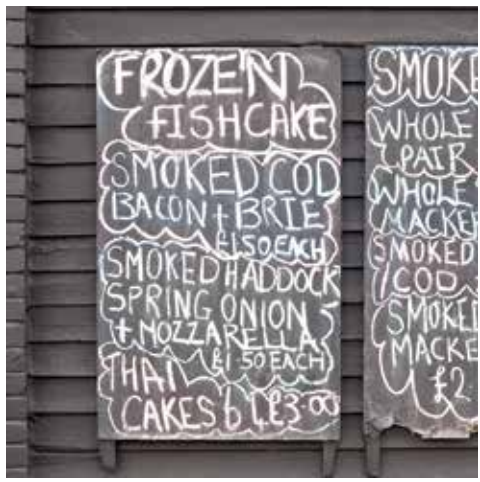 FROZEN
FISHCAKE
SMOKED COD
BACON + BRIE
£1.50 EACH
SMOKED HADDOCK
SPRING ONION
+ MOZZARELLA
£1.50 EACH
THAI
CAKES 6 £3.00
SMOKE
WHOLE
PAIR
WHOLE
MACKE
SMOKED
COD
SMOKED
MACKE
£2